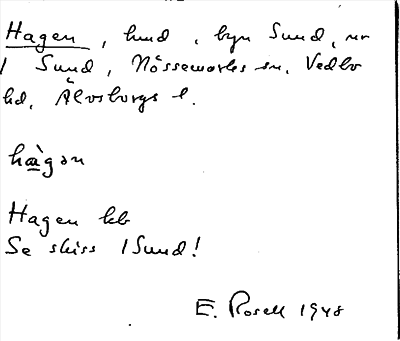 Hagen, lund, byn Sund, nr
1 Sund, Nössemarks sn, Vedbo
hd, Älvsborgs l.
hàgən
Hagen kb
Se skiss 1 Sund!
E. Rosell 1948